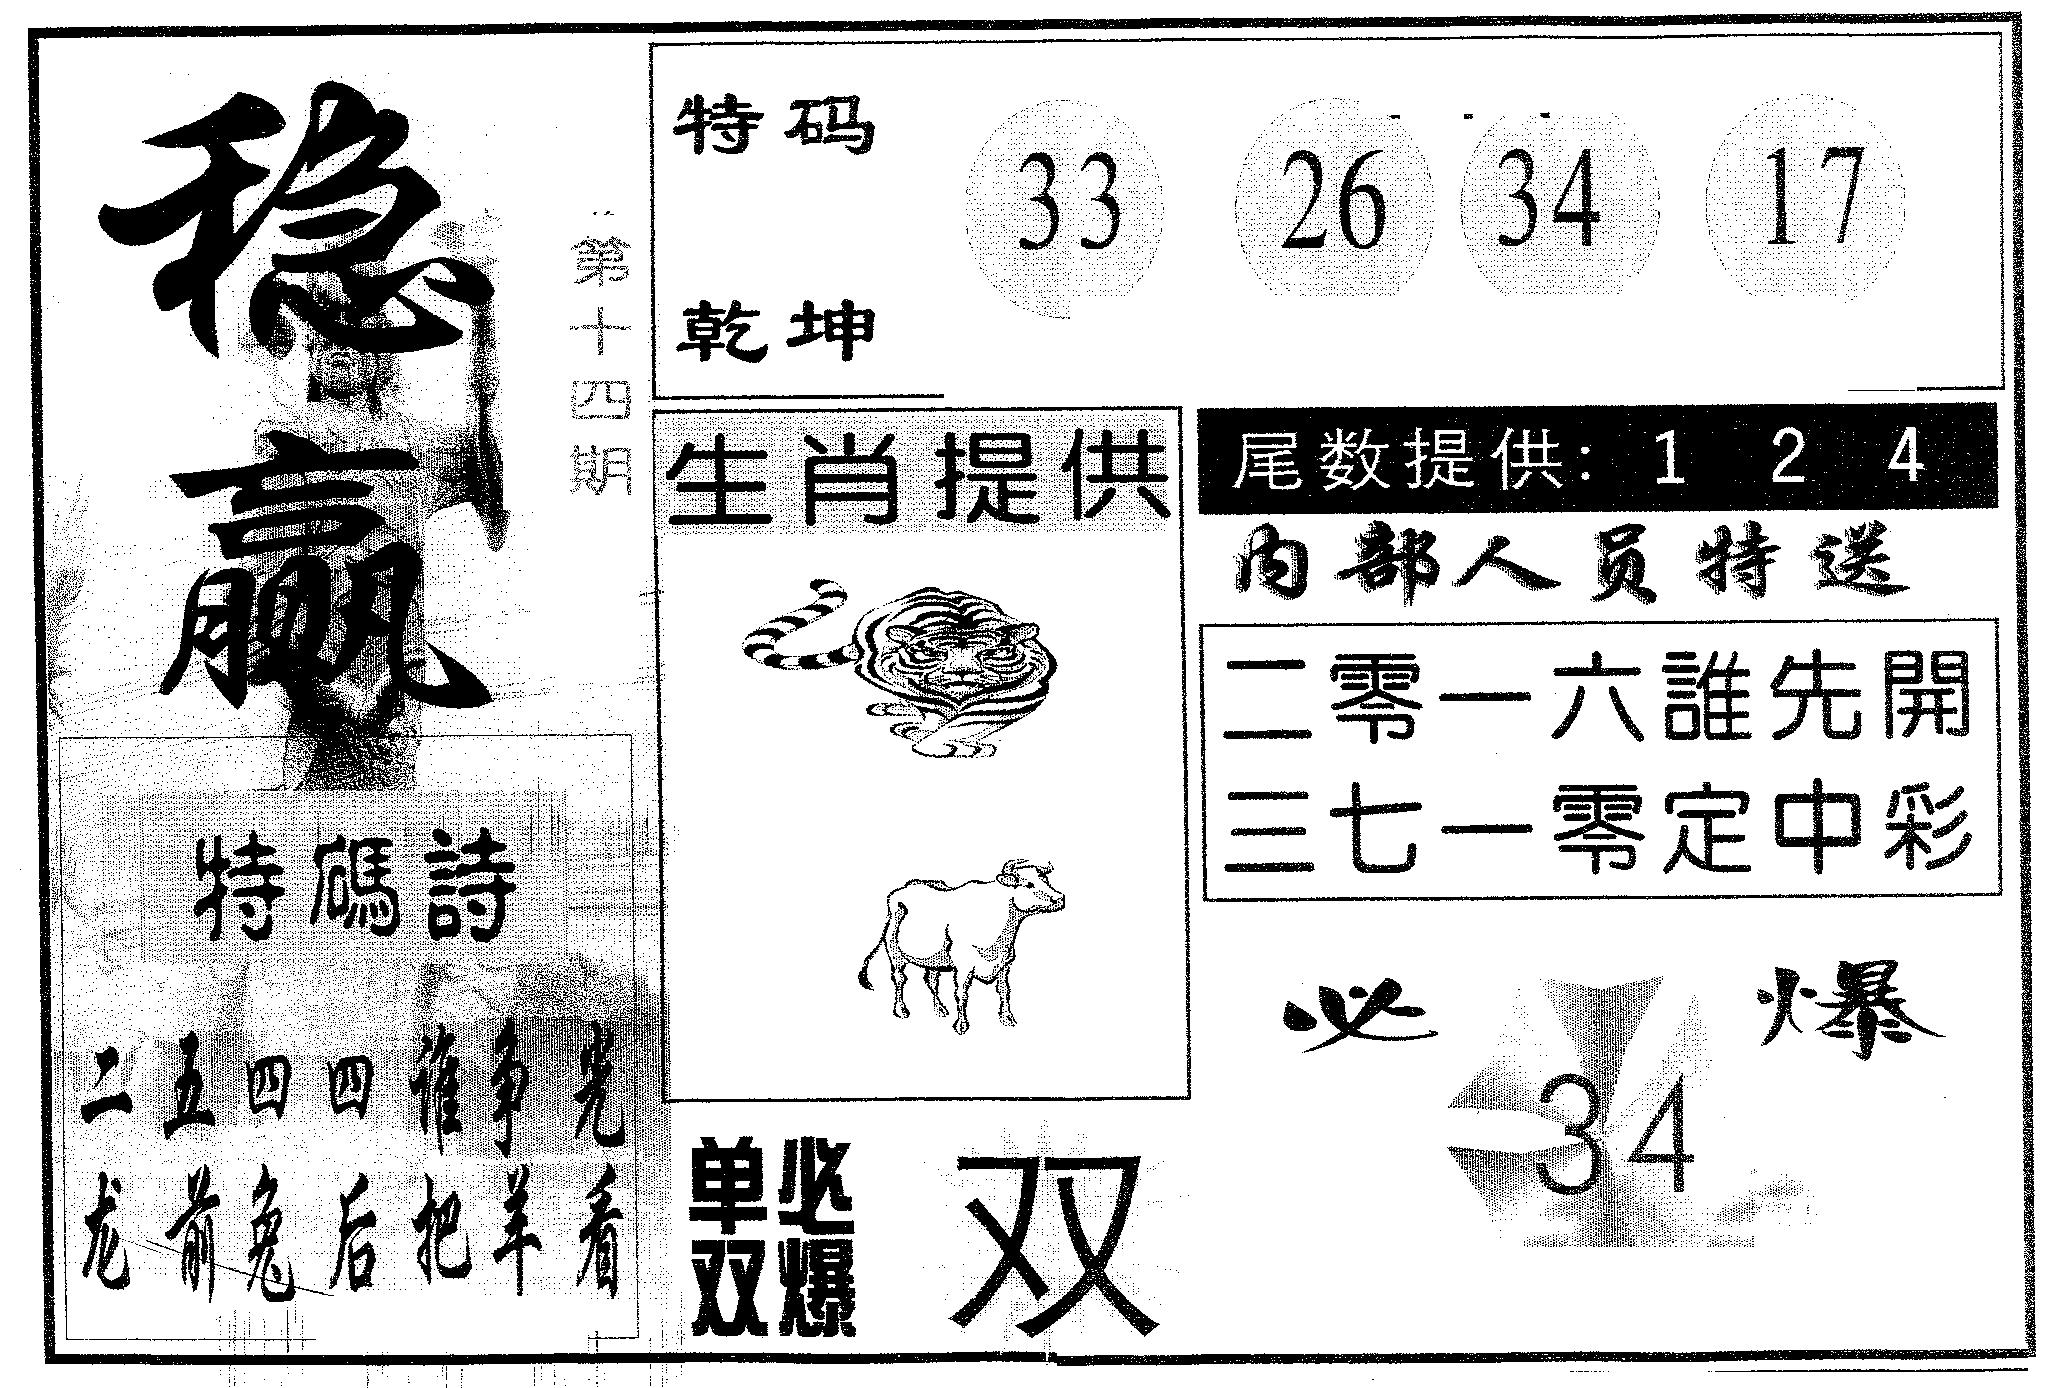 稳赢
第十四期
特码 33 26 34 17
乾坤
生肖提供
尾数提供: 1 2 4
内部人员特送
二零一六誰先開
三七一零定中彩
特碼詩
二五四四谁争光
龙前兔后把羊看
单双必爆
双
必爆
34